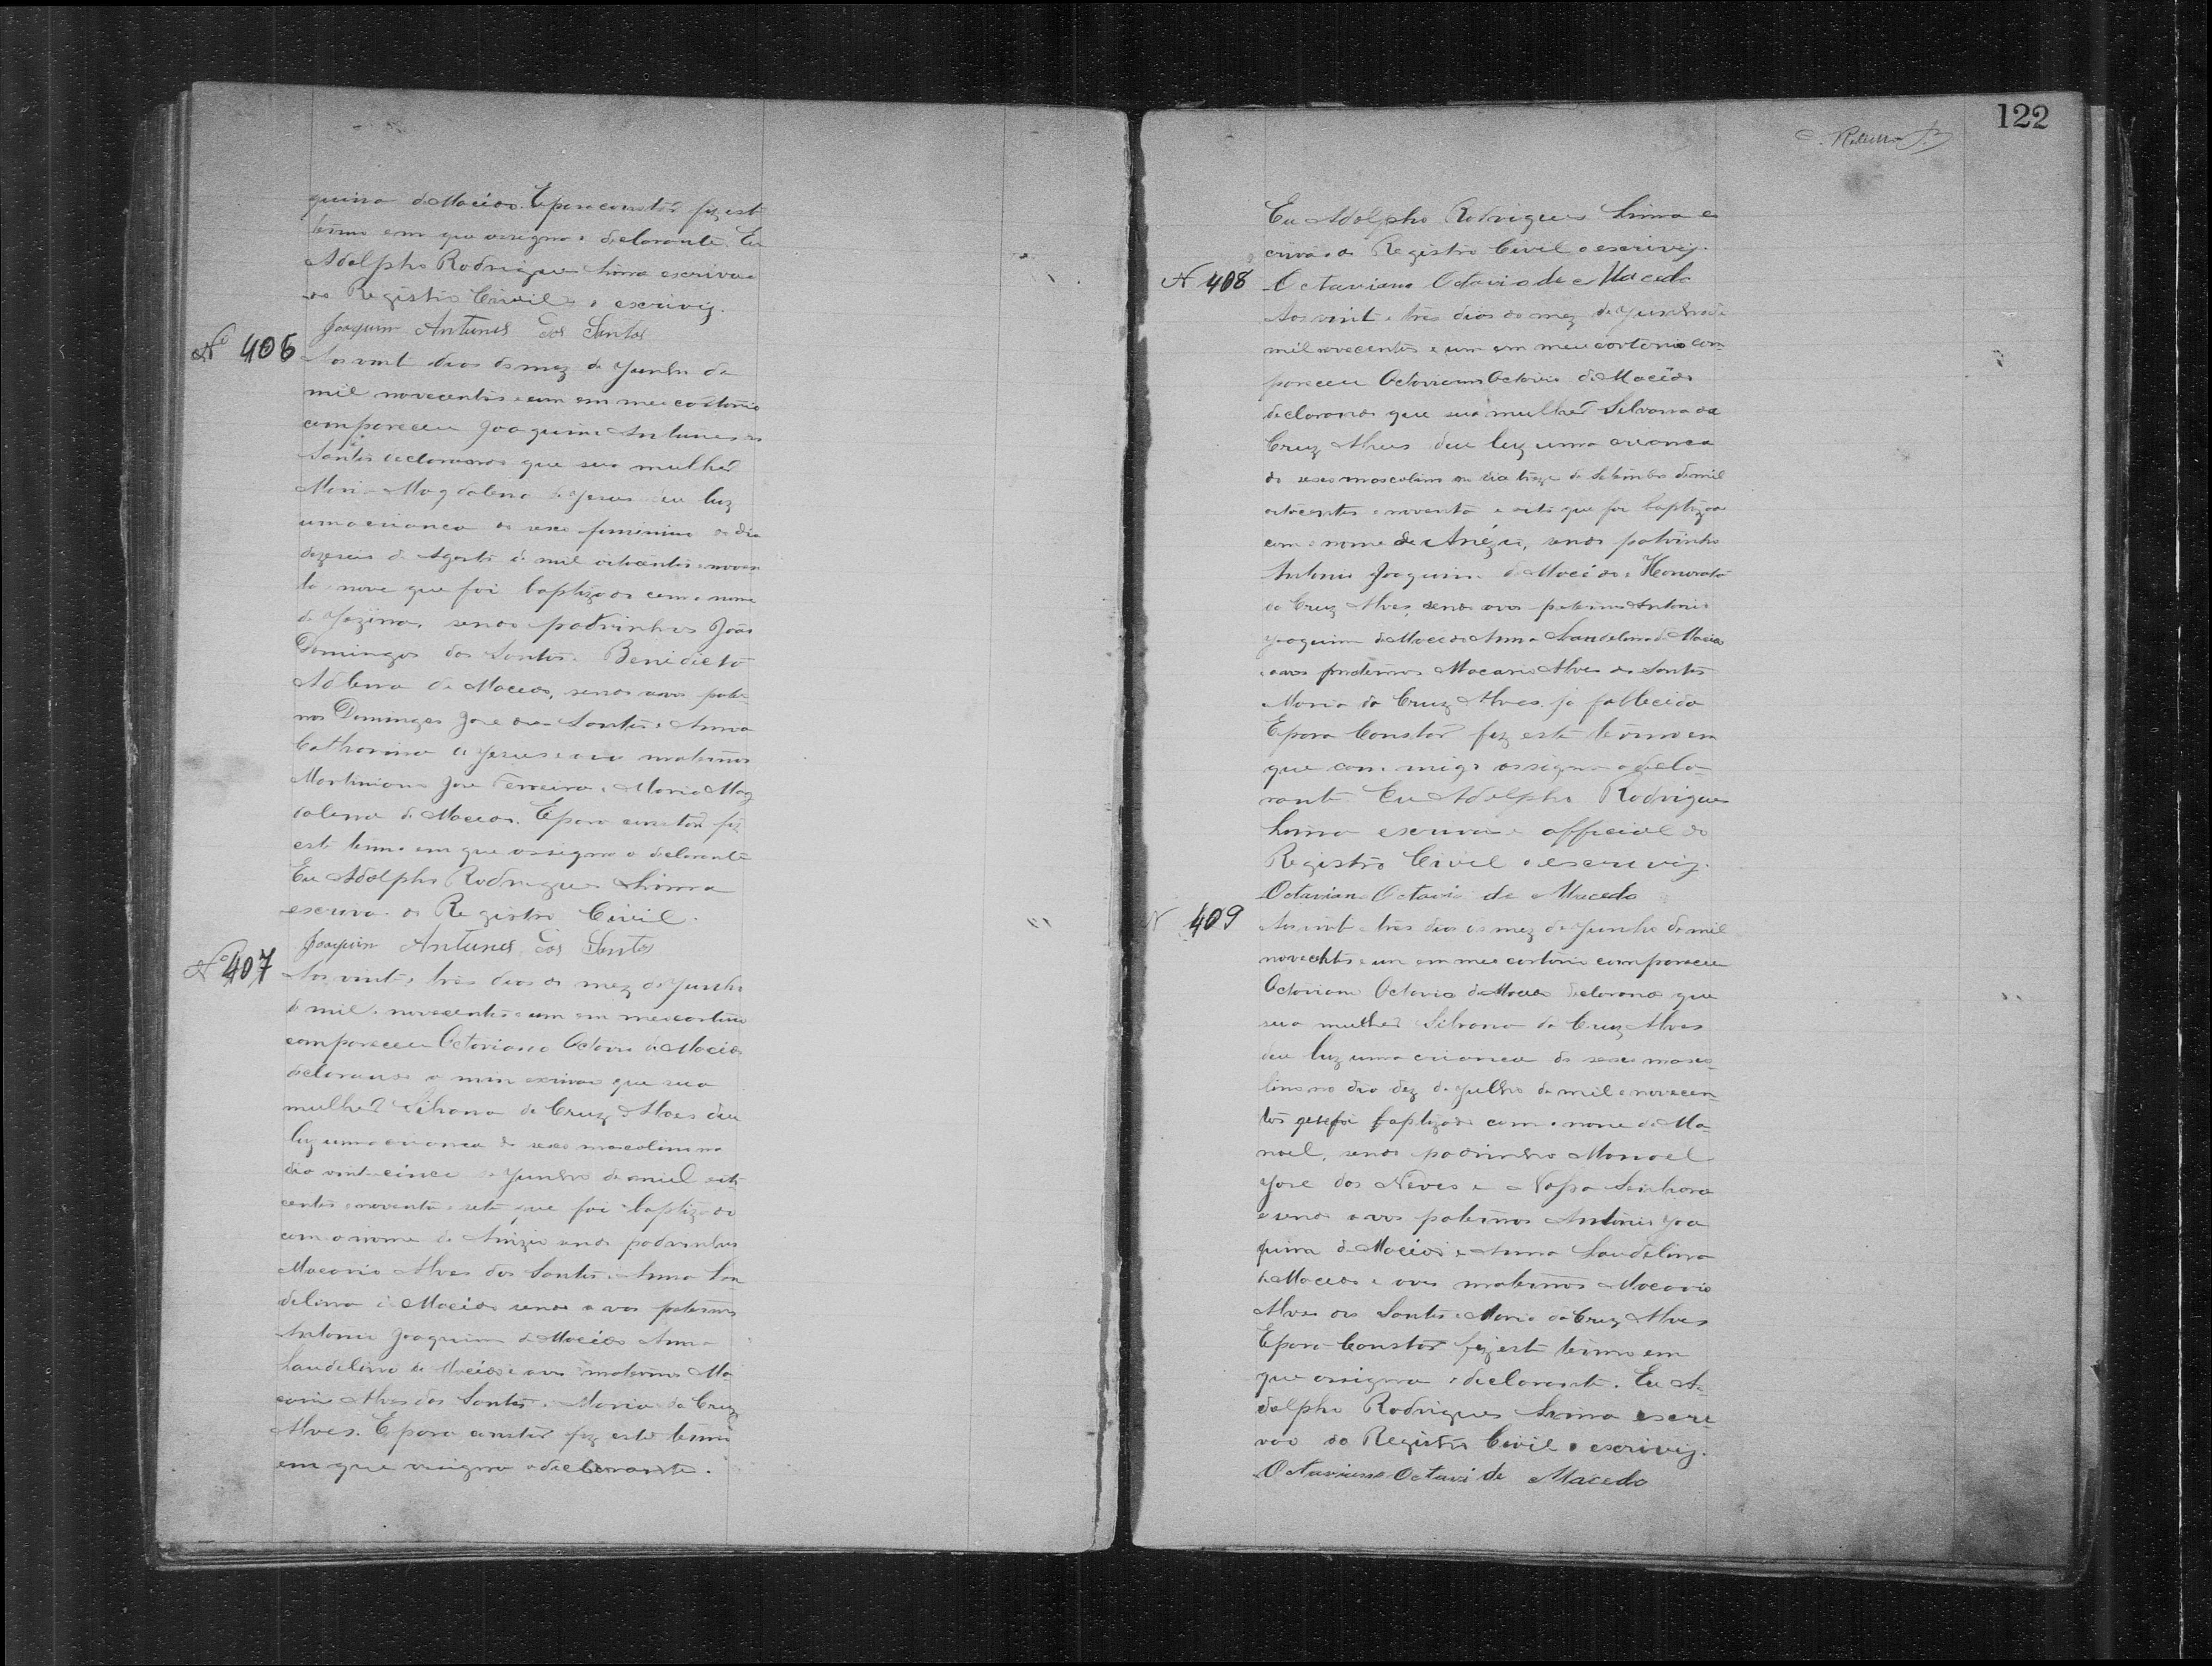 quina de Macêdo. E para constar fiz este
termo em que assigna o declarante. Eu
Adolpho Rodrigues Lima escrivão
do Registro Civil o escrivij.
Joaquim Antunes dos Santos
Nº 406
Aos vinte dias do mez de Junho de
mil novecentos e um em meu cartorio
compareceu Joaquim Antunes dos
Santos declarando que sua mulher
Maria Magdalena de Jesus deu luz
uma crianca do sexo feminino no dia
dezeseis de Agosto de mil oitocentos e noven
ta e nove que foi baptizada com o nome
de Jozina, sendo padrinhos João
Domingos dos Santos e Benedicta
de Macedo, sendo avos pater
nos Domingos José dos Santos e Anna
Catharina de Jesus e avos maternos
Martiniano José Ferreira e Maria Mag
dalena de Macedo. E para constar fiz
este termo em que assigna o declarante
Eu Adolpho Rodrigues Lima
escrivão do Registro Civil.
Joaquim Antunes dos Santos
Nº 407
Aos vinte e três dias do mez de Junho
de mil e novecentos e um em meu cartorio
compareceu Octaviano Octavio de Macêdo
declarando a mim escrivão que sua
mulher Silvana da Cruz Alves deu
luz uma crianca do sexo mascolino no
dia vinte e cinco de Junho de mil oito
centos e noventa e sete que foi baptizado
com o nome de Anizio sendo padrinhos
Macario Alves dos Santos e Anna Lau
delina de Macêdo sendo avos paternos
Antonio Joaquim de Macêdo Anna
Laudelina de Macêdo e avos maternos Ma
cario Alves dos Santos e Maria da Cruz
Alves. E para constar fiz este termo
em que assigna o declarante.
122
Eu Adolpho Rodrigues Lima es
crivão do Registro Civil o escrivij.
Octaviano Octavio de Macedo
N 408
Aos vinte e três dias do mez de Junho de
mil novecentos e um em meu cartorio com
pareceu Octaviano Octavio de Macêdo
declarando que sua mulher Silvana da
Cruz Alves deu luz uma crianca
do sexo mascolino no dia treze de Setembro de mil
oitocentos e noventa e oito que foi baptizado
com o nome de Anézio, sendo padrinho
Antonio Joaquim de Macêdo e Honorata
da Cruz Alves, sendo avos paternos Antonio
Joaquim de Macedo Anna Laudelina de Macêdo
e avos maternos Macario Alves dos Santos
Maria da Cruz Alves já fallecida
E para Constar fiz este termo em
que com migo assigna o decla-
rante. Eu Adolpho Rodrigues
Lima escrivão e official do
Registro Civil o escrevij.
Octaviano Octavio de Macedo
N 409
Aos vinte e três dias do mez de Junho de mil
novecentos e um em meu cartorio compareceu
Octaviano Octavio de Macedo declarando que
sua mulher Silvana da Cruz Alves
deu luz uma crianca do sexo masco-
lino no dia dez de Julho de mil e novecen
tos que foi baptizado com o nome de Ma-
noel, sendo padrinho Manoel
José das Neves e Nossa Senhora
e sendo avos paternos Antonio Joa
quim de Macêdo e Anna Laudelina
de Macedo e avos maternos Macario
Alves dos Santos e Maria da Cruz Alves
E para Constar fiz este termo em
que assigna o declarante. Eu A-
dolpho Rodrigues Lima escri
vão do Registro Civil o escrivij.
Octaviano Octavi de Macedo